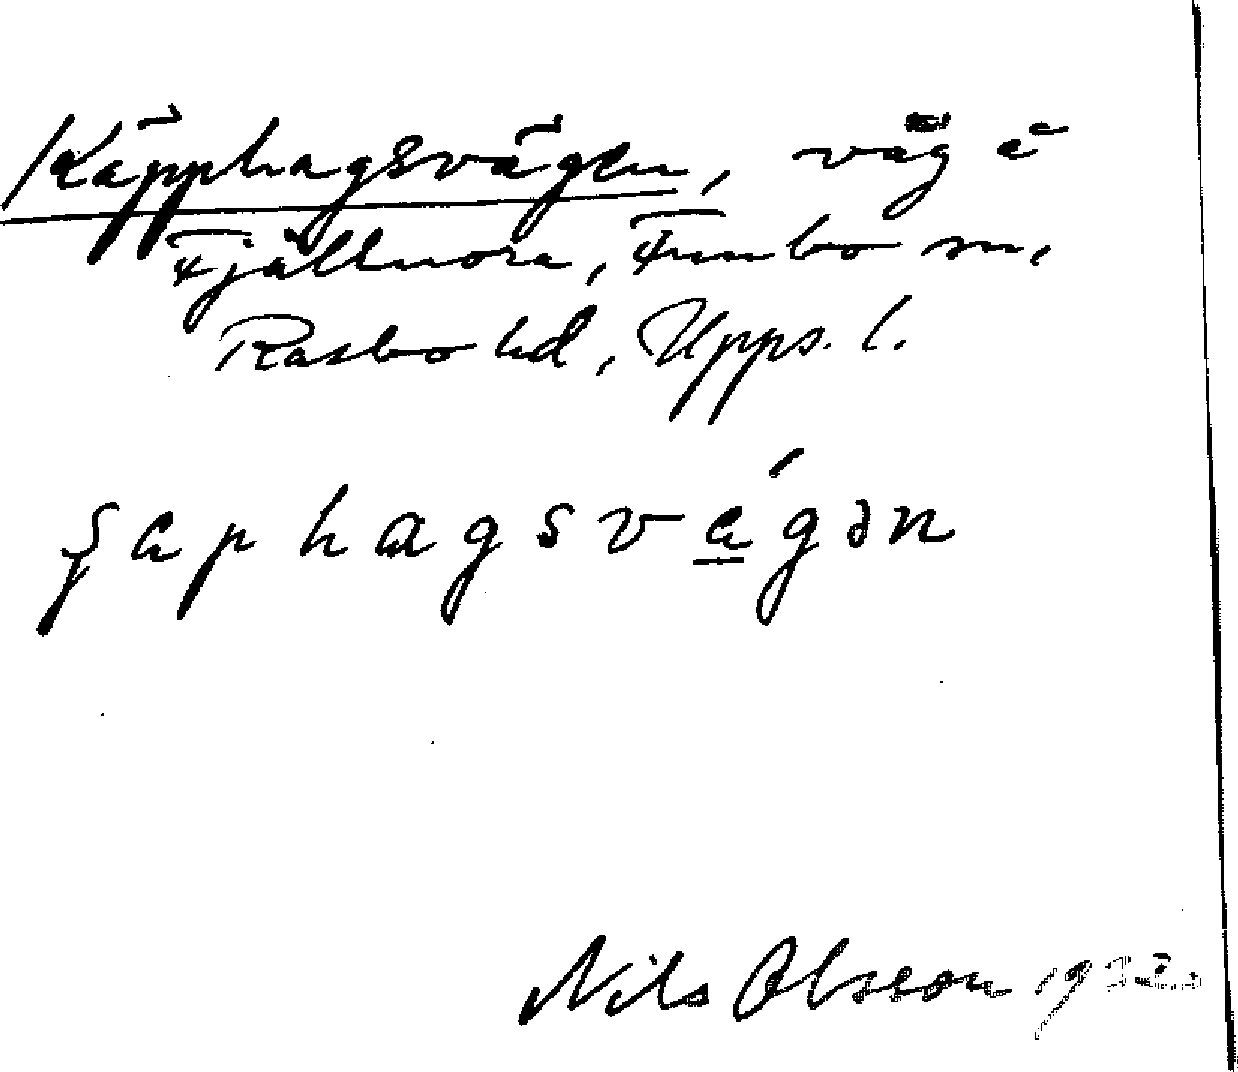 Käpphagsvägen, väg i
Fjällnora, Funbo sn,
Rasbo hd, Upps. l.
ʂaphagsvǻgən
Nils Olsson